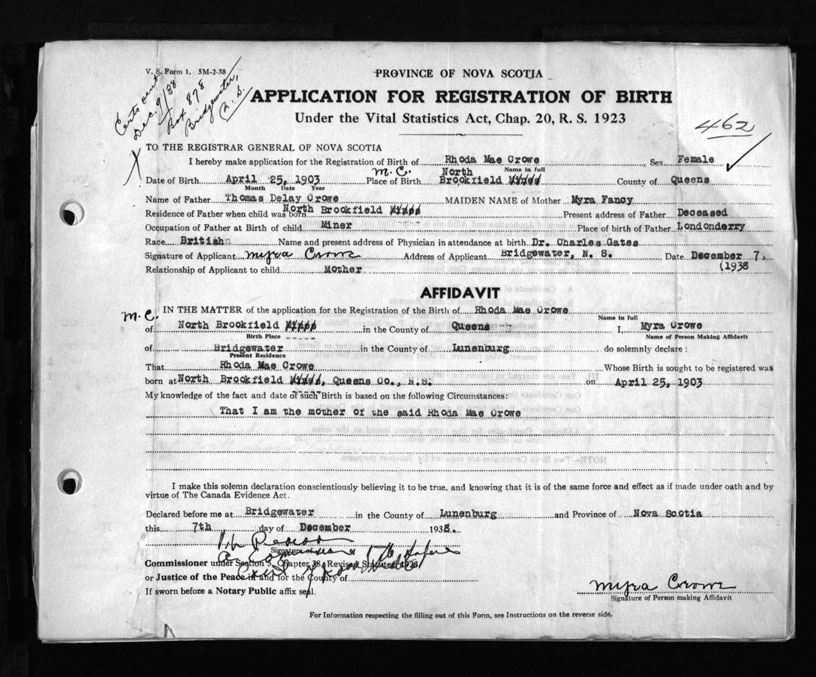 V. S. Form 1. 5M-2-38
PROVINCE OF NOVA SCOTIA
Certs sent
Dec. 9/38
Box 878
Bridgewater,
N. S.
APPLICATION FOR REGISTRATION OF BIRTH
Under the Vital Statistics Act, Chap. 20, R. S. 1923
462
TO THE REGISTRAR GENERAL OF NOVA SCOTIA
I hereby make application for the Registration of Birth of Rhoda Mae Crowe Sex Female
Name in full
M. C. North
Date of Birth April 25, 1903 Place of Birth Brookfield Mines County of Queens
Month Date Year
Name of Father Thomas Delay Crowe MAIDEN NAME of Mother Myra Fancy
Residence of Father when child was born North Brookfield Mines Present address of Father Deceased
Occupation of Father at Birth of child Miner Place of birth of Father Londonderry
Race British Name and present address of Physician in attendance at birth Dr. Charles Gates
Signature of Applicant Myra Crowe Address of Applicant Bridgewater, N. S. Date December 7,
(1938
Relationship of Applicant to child Mother
AFFIDAVIT
M. C. IN THE MATTER of the application for the Registration of the Birth of Rhoda Mae Crowe
Name in full
of North Brookfield Mines in the County of Queens I, Myra Crowe
Birth Place Name of Person Making Affidavit
of Bridgewater in the County of Lunenburg do solemnly declare:
Present Residence
That Rhoda Mae Crowe Whose Birth is sought to be registered was
born at North Brookfield Mines, Queens Co., N.S. on April 25, 1903
My knowledge of the fact and date of such Birth is based on the following Circumstances:
That I am the mother of the said Rhoda Mae Crowe
I make this solemn declaration conscientiously believing it to be true, and knowing that it is of the same force and effect as if made under oath and by
virtue of The Canada Evidence Act.
Declared before me at Bridgewater in the County of Lunenburg and Province of Nova Scotia
this 7th day of December 1938.
Signature
Commissioner under Section 5, Chapter 38, Revised Statutes 1923
or Justice of the Peace in and for the County of
If sworn before a Notary Public affix seal.
Myra Crowe
Signature of Person making Affidavit
For Information respecting the filling out of this Form, see Instructions on the reverse side.